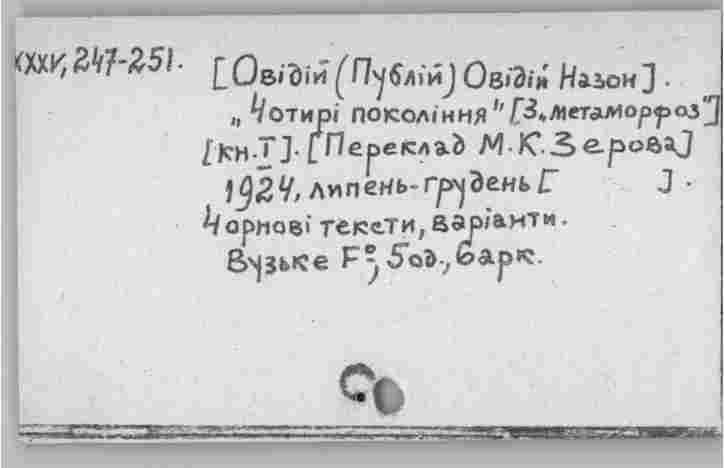 XXXV, 247-251.
[Овідій (Публій) Овідій Назон].
„Чотирі покоління" [З „метаморфоз"]
[кн. I]. [Переклад М.К. Зерова]
1924, липень-грудень [ ].
Чорнові тексти, варіанти.
Вузьке F°, 5 од., 6 арк.